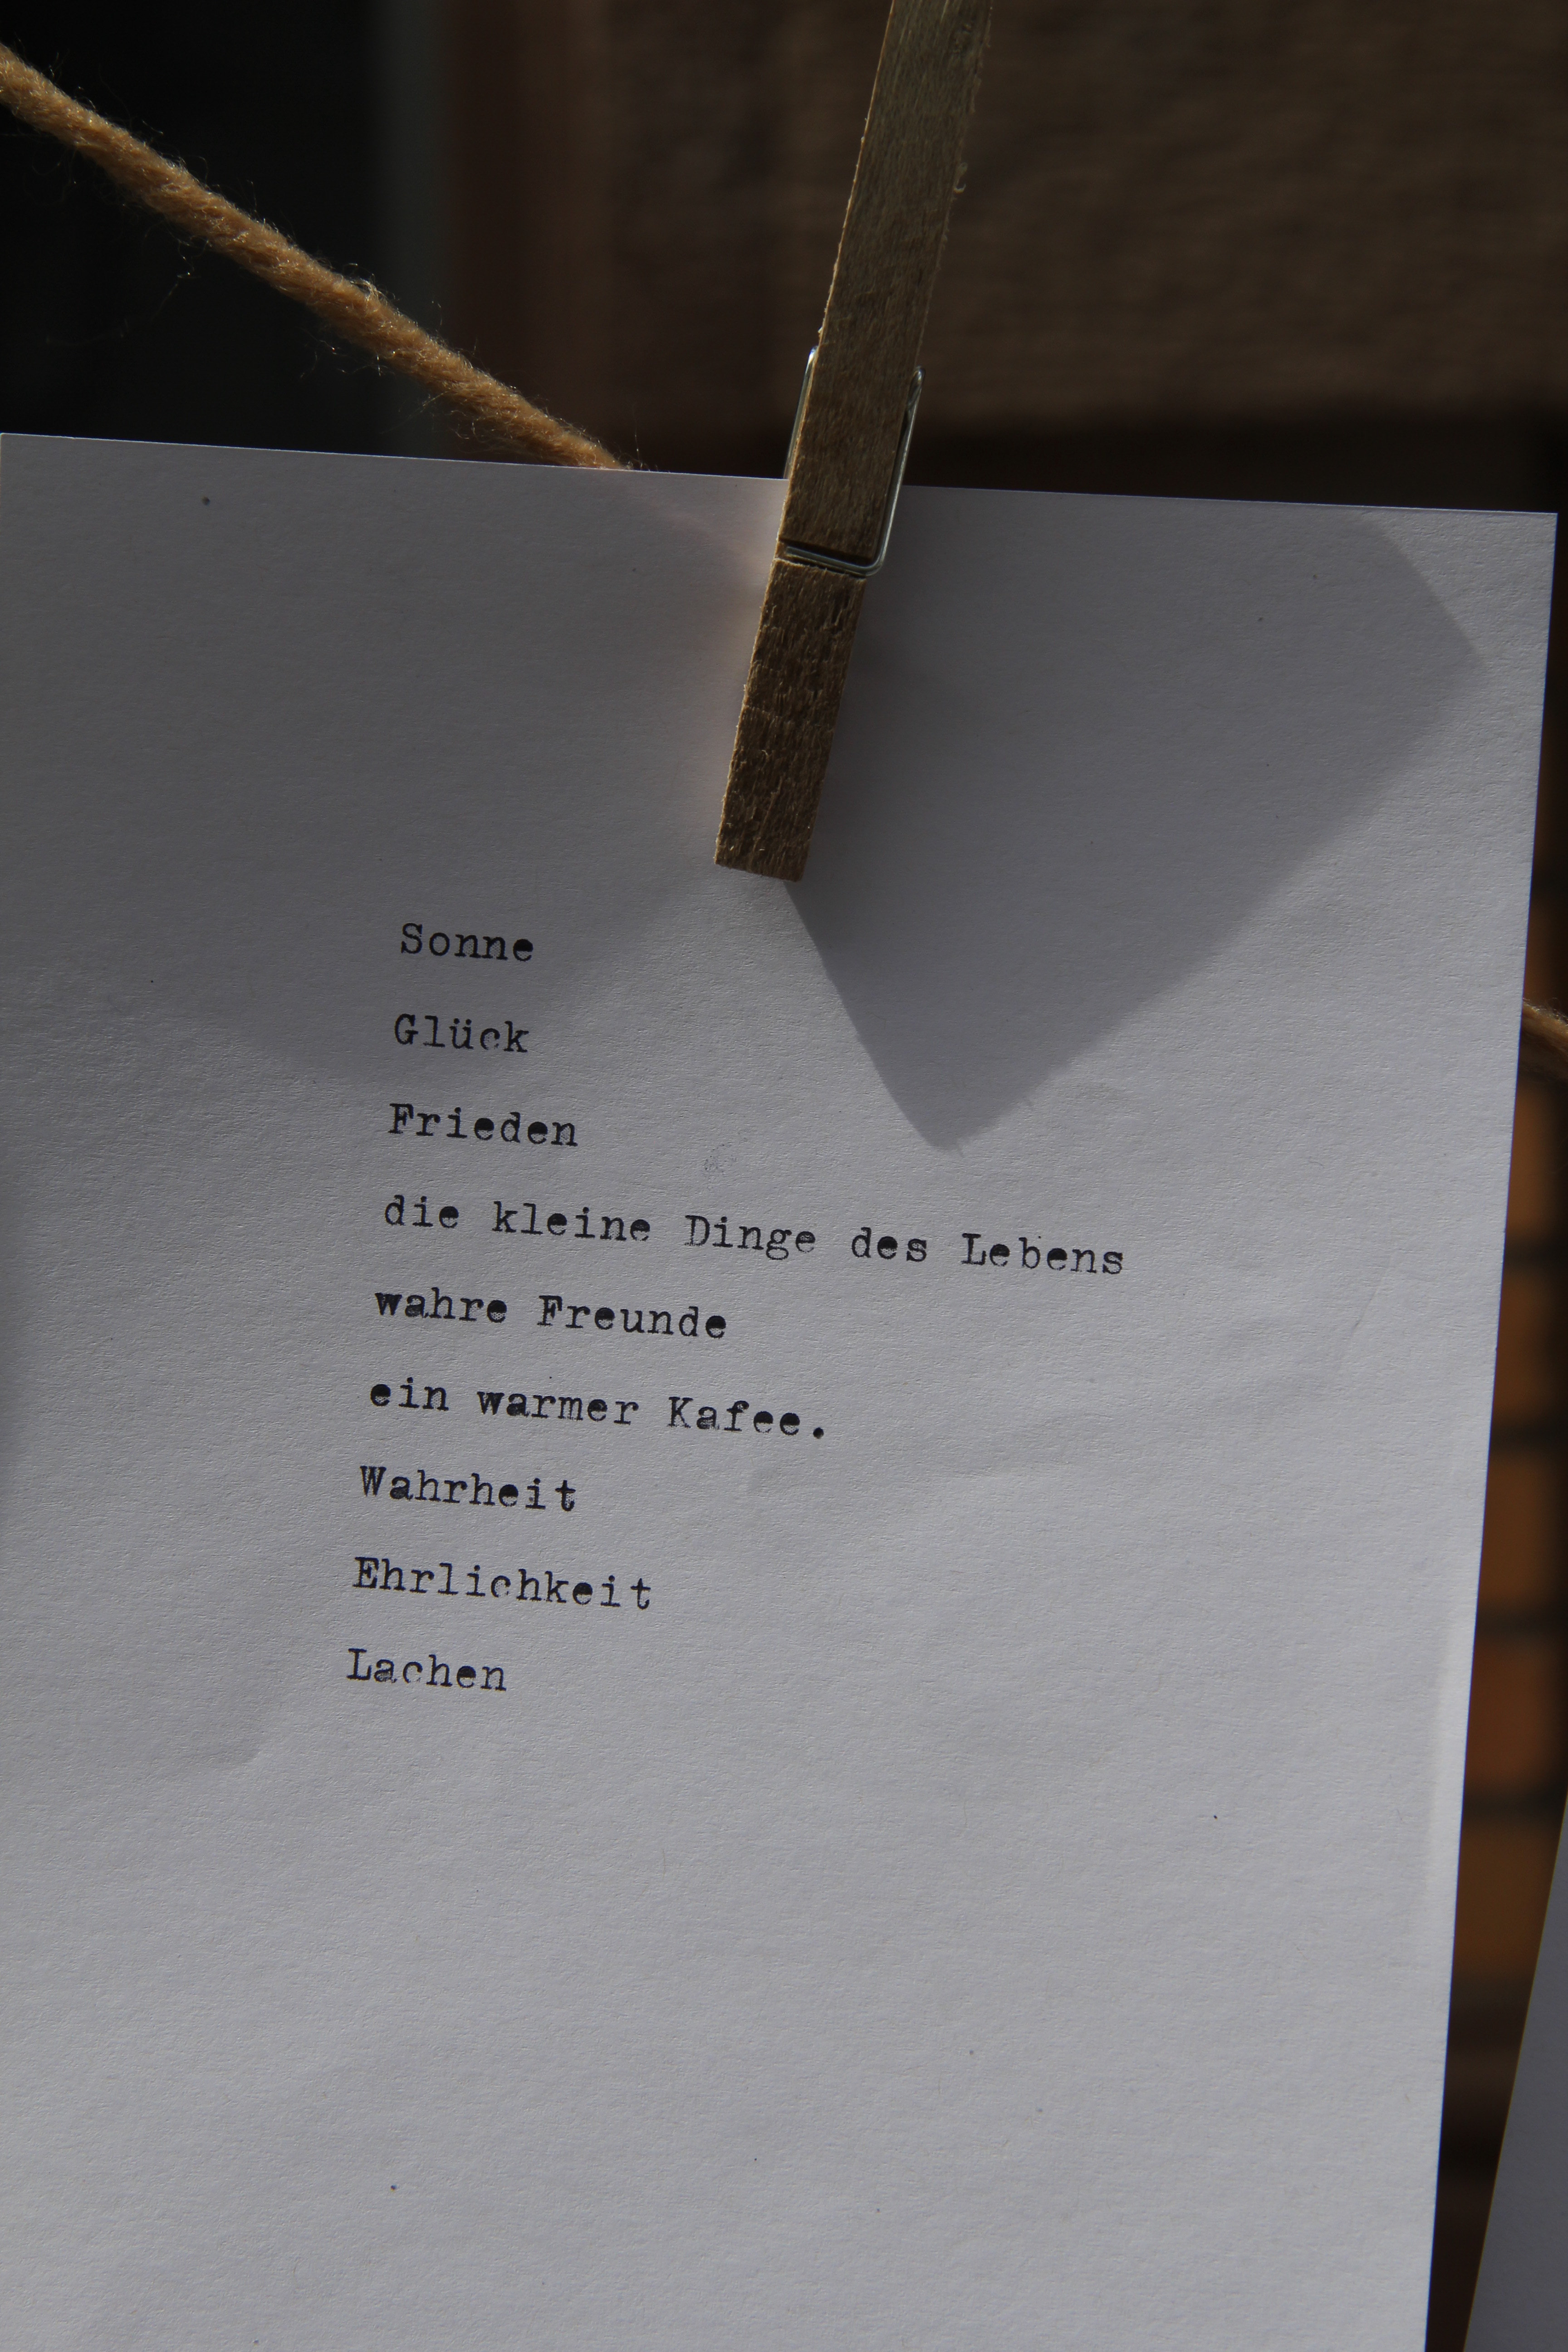 Sonne
Glück
Frieden
die kleine Dinge des Lebens
wahre Freunde
ein warmer Kafee.
Wahrheit
Ehrlichkeit
Lachen